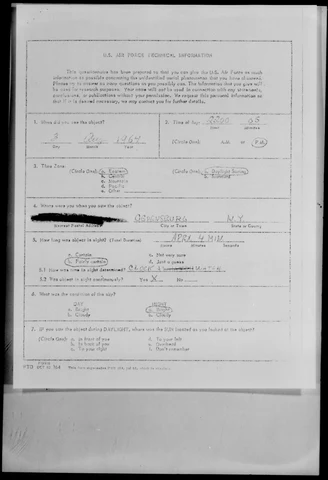 U.S. AIR FORCE TECHNICAL INFORMATION
This questionnaire has been prepared so that you can give the U.S. Air Force as much
information as possible concerning the unidentified aerial phenomenon that you have observed.
Please try to answer as many questions as you possibly can. The information that you give will
be used for research purposes. Your name will not be used in connection with any statements,
conclusions, or publications without your permission. We request this personal information so
that if it is deemed necessary, we may contact you for further details.
1. When did you see the object?
2. Time of day:
3 1967
Day Month Year
Hour Minutes
(Circle One): A.M. or P.M.
3. Time Zone:
(Circle One): a. Eastern
b. Central
c. Mountain
d. Pacific
e. Other
(Circle One): a. Daylight Saving
b. Standard
4. Where were you when you saw the object?
OGDENSBURG N.Y.
Nearest Postal Address City or Town State or County
5. How long was object in sight? (Total Duration) 4 MIN
Hours Minutes Seconds
a. Certain c. Not very sure
b. Fairly certain d. Just a guess
5.1 How was time in sight determined?
5.2 Was object in sight continuously? Yes X No
6. What was the condition of the sky?
DAY NIGHT
a. Bright a. Bright
b. Cloudy b. Cloudy
7. IF you saw the object during DAYLIGHT, where was the SUN located as you looked at the object?
(Circle One): a. In front of you d. To your left
b. In back of you e. Overhead
c. To your right f. Don't remember
FORM
FTD OCT 62 164